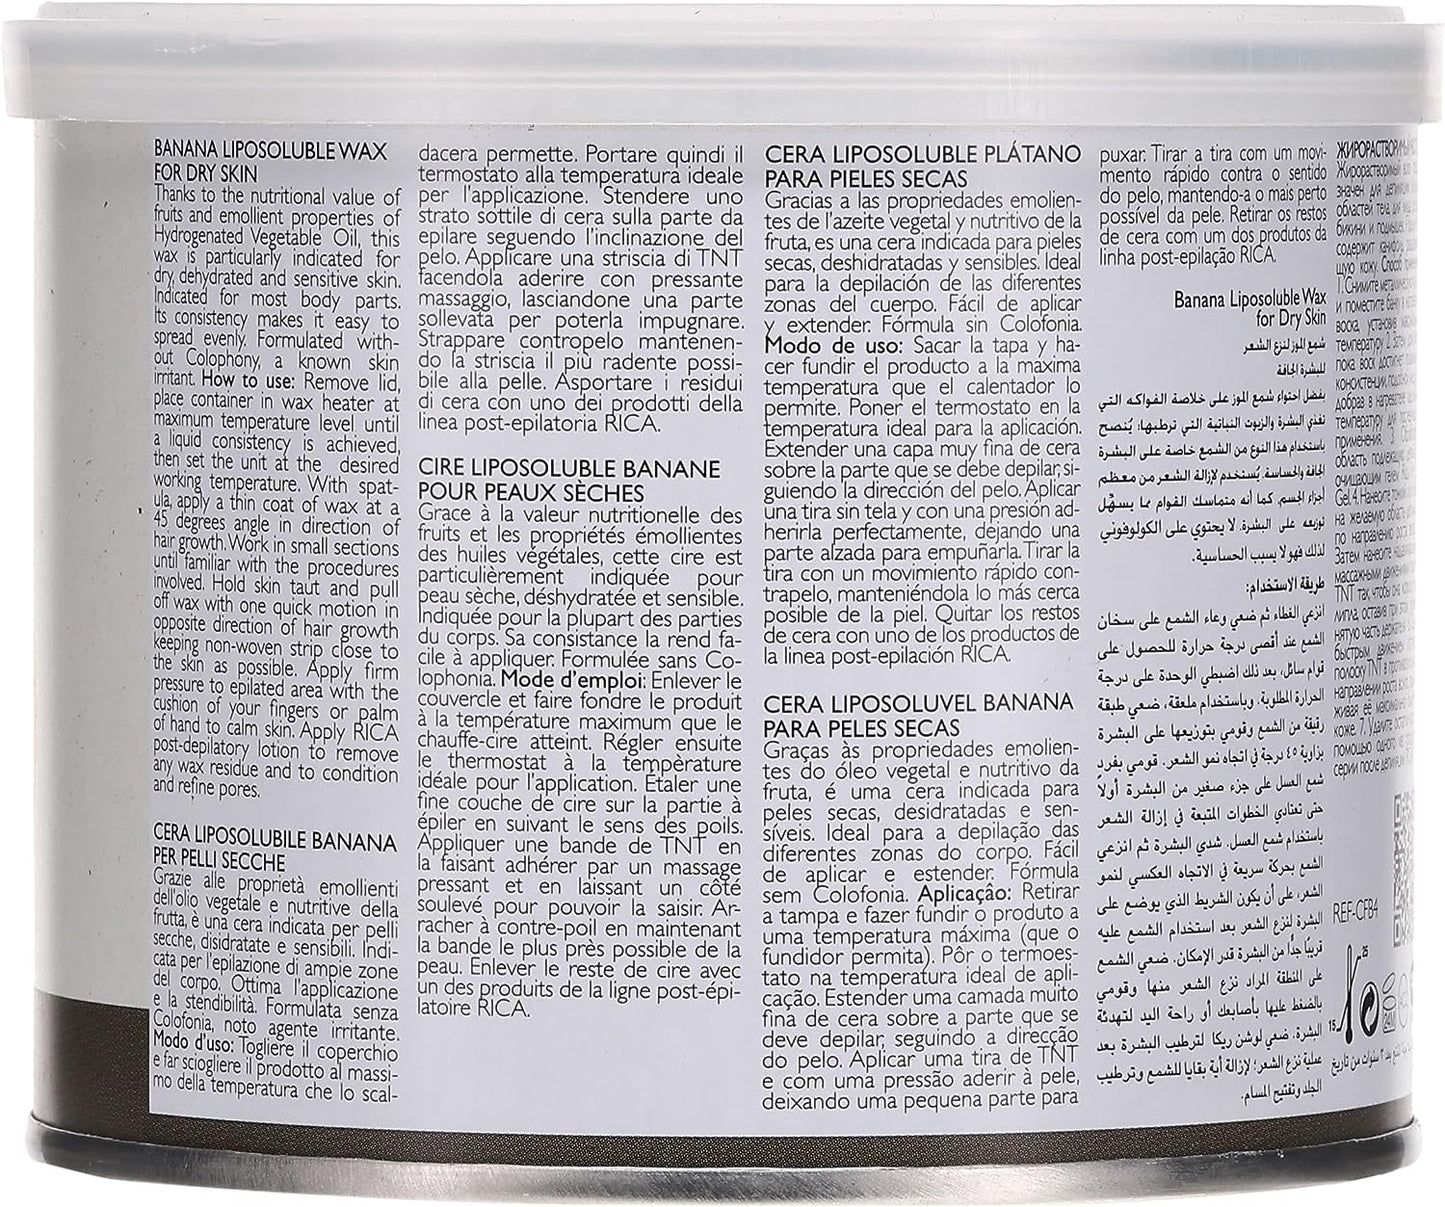 BANANA LIPOSOLUBLE WAX
FOR DRY SKIN
Thanks to the nutritional value of
fruits and emollient properties of
Hydrogenated Vegetable Oil, this
wax is particularly indicated for
dry, dehydrated and sensitive skin.
Indicated for most body parts.
Its consistency makes it easy to
spread evenly. Formulated with-
out Colophony, a known skin
irritant. How to use: Remove lid,
place container in wax heater at
maximum temperature level until
a liquid consistency is achieved,
then set the unit at the desired
working temperature. With spat-
ula, apply a thin coat of wax at a
45 degrees angle in direction of
hair growth. Work in small sections
until familiar with the procedures
involved. Hold skin taut and pull
off wax with one quick motion in
opposite direction of hair growth
keeping non-woven strip close to
the skin as possible. Apply firm
pressure to epilated area with the
cushion of your fingers or palm
of hand to calm skin. Apply RICA
post-depilatory lotion to remove
any wax residue and to condition
and refine pores.
CERA LIPOSOLUBILE BANANA
PER PELLI SECCHE
Grazie alle proprietà emollienti
dell'olio vegetale e nutritive della
frutta, è una cera indicata per pelli
secche, disidratate e sensibili. Indi-
cata per l'epilazione di ampie zone
del corpo. Ottima l'applicazione
e la stendibilità. Formulata senza
Colofonia, noto agente irritante.
Modo d'uso: Togliere il coperchio
e far sciogliere il prodotto al massi-
mo della temperatura che lo scal-
dacera permette. Portare quindi il
termostato alla temperatura ideale
per l'applicazione. Stendere uno
strato sottile di cera sulla parte da
epilare seguendo l'inclinazione del
pelo. Applicare una striscia di TNT
facendola aderire con pressante
massaggio, lasciandone una parte
sollevata per poterla impugnare.
Strappare contropelo mantenen-
do la striscia il più radente possi-
bile alla pelle. Asportare i residui
di cera con uno dei prodotti della
linea post-epilatoria RICA.
CIRE LIPOSOLUBLE BANANE
POUR PEAUX SÈCHES
Grace à la valeur nutritionelle des
fruits et les propriétés émollientes
des huiles végétales, cette cire est
particulièrement indiquée pour
peau sèche, déshydratée et sensible.
Indiquée pour la plupart des parties
du corps. Sa consistance la rend fa-
cile à appliquer. Formulée sans Co-
lophonia. Mode d'emploi: Enlever le
couvercle et faire fondre le produit
à la température maximum que le
chauffe-cire atteint. Régler ensuite
le thermostat à la tempèrature
idéale pour l'application. Étaler une
fine couche de cire sur la partie à
épiler en suivant le sens des poils.
Appliquer une bande de TNT en
la faisant adhérer par un massage
pressant et en laissant un côté
soulevé pour pouvoir la saisir. Ar-
racher à contre-poil en maintenant
la bande le plus près possible de la
peau. Enlever le reste de cire avec
un des produits de la ligne post-épi-
latoire RICA.
CERA LIPOSOLUBLE PLÁTANO
PARA PIELES SECAS
Gracias a las propriedades emolien-
tes de l'azeite vegetal y nutritivo de la
fruta, es una cera indicada para pieles
secas, deshidratadas y sensibles. Ideal
para la depilación de las diferentes
zonas del cuerpo. Fácil de aplicar
y extender. Fórmula sin Colofonia.
Modo de uso: Sacar la tapa y ha-
cer fundir el producto a la maxima
temperatura que el calentador lo
permite. Poner el termostato en la
temperatura ideal para la aplicación.
Extender una capa muy fina de cera
sobre la parte que se debe depilar, si-
guiendo la dirección del pelo. Aplicar
una tira sin tela y con una presión ad-
herirla perfectamente, dejando una
parte alzada para empuñarla. Tirar la
tira con un movimiento rápido con-
trapelo, manteniéndola lo más cerca
posible de la piel. Quitar los restos
de cera con uno de los productos de
la linea post-epilación RICA.
CERA LIPOSOLUVEL BANANA
PARA PELES SECAS
Graças às propriedades emolien-
tes do óleo vegetal e nutritivo da
fruta, é uma cera indicada para
peles secas, desidratadas e sen-
síveis. Ideal para a depilação das
diferentes zonas do corpo. Fácil
de aplicar e estender. Fórmula
sem Colofonia. Aplicaçâo: Retirar
a tampa e fazer fundir o produto a
uma temperatura máxima (que o
fundidor permita). Pôr o termoes-
tato na temperatura ideal de apli-
cação. Estender uma camada muito
fina de cera sobre a parte que se
deve depilar, seguindo a direcção
do pelo. Aplicar uma tira de TNT
e com uma pressão aderir à pele,
deixando uma pequena parte para
puxar. Tirar a tira com um movi-
mento rápido contra o sentido
do pelo, mantendo-a o mais perto
possível da pele. Retirar os restos
de cera com um dos produtos da
linha post-epilação RICA.
Banana Liposoluble Wax
for Dry Skin
شمع الموز لنزع الشعر
للبشرة الجافة
بفضل احتواء شمع الموز على خلاصة الفواكه التي
تغذي البشرة والزيوت النباتية التي ترطبها؛ يُنصح
باستخدام هذا النوع من الشمع خاصة على البشرة
الجافة والحساسة. يُستخدم لإزالة الشعر من معظم
أجزاء الجسم. كما أنه متماسك القوام مما يسهّل
توزيعه على البشرة. لا يحتوي على الكولوفوني
لذلك فهو لا يسبب الحساسية.
طريقة الاستخدام:
انزعي الغطاء ثم ضعي وعاء الشمع على سخان
الشمع عند أقصى درجة حرارة للحصول على
قوام سائل. بعد ذلك اضبطي الوحدة على درجة
الحرارة المطلوبة. وباستخدام ملعقة، ضعي طبقة
رقيقة من الشمع وقومي بتوزيعها على البشرة
بزاوية ٤٥ درجة في اتجاه نمو الشعر. قومي بفرد
شمع العسل على جزء صغير من البشرة أولاً
حتى تعتادي الخطوات المتبعة في إزالة الشعر
باستخدام شمع العسل. شدي البشرة ثم انزعي
الشمع بحركة سريعة في الاتجاه العكسي لنمو
الشعر، على أن يكون الشريط الذي يوضع على
البشرة لنزع الشعر بعد استخدام الشمع عليه
قريبًا جدًا من البشرة قدر الإمكان. ضعي الشمع
على المنطقة المراد نزع الشعر منها وقومي
بالضغط عليها بأصابعك أو راحة اليد لتهدئة
البشرة. ضعي لوشن ريكا لترطيب البشرة بعد
عملية نزع الشعر؛ لإزالة أية بقايا للشمع وترطيب
الجلد وتفتيح المسام.
значен для депиляции
областей тела
бикини и
содержит
щую кожу. Способ
1. Снимите
и поместите
воска,
температуру 2.
пока воск
консистенции,
температуру для
применения. 3.
область
очищающим
Gel. 4. Нанесите
на желаемую
по направлению
Затем нанесите
массажными
TNT так, чтобы
липла, оставив
нятую часть
быстрым
полоску TNT в
направлении роста
живая её
коже. 7. Удалите
помощью одного
серии после
REF-CFB4
25
15
24M